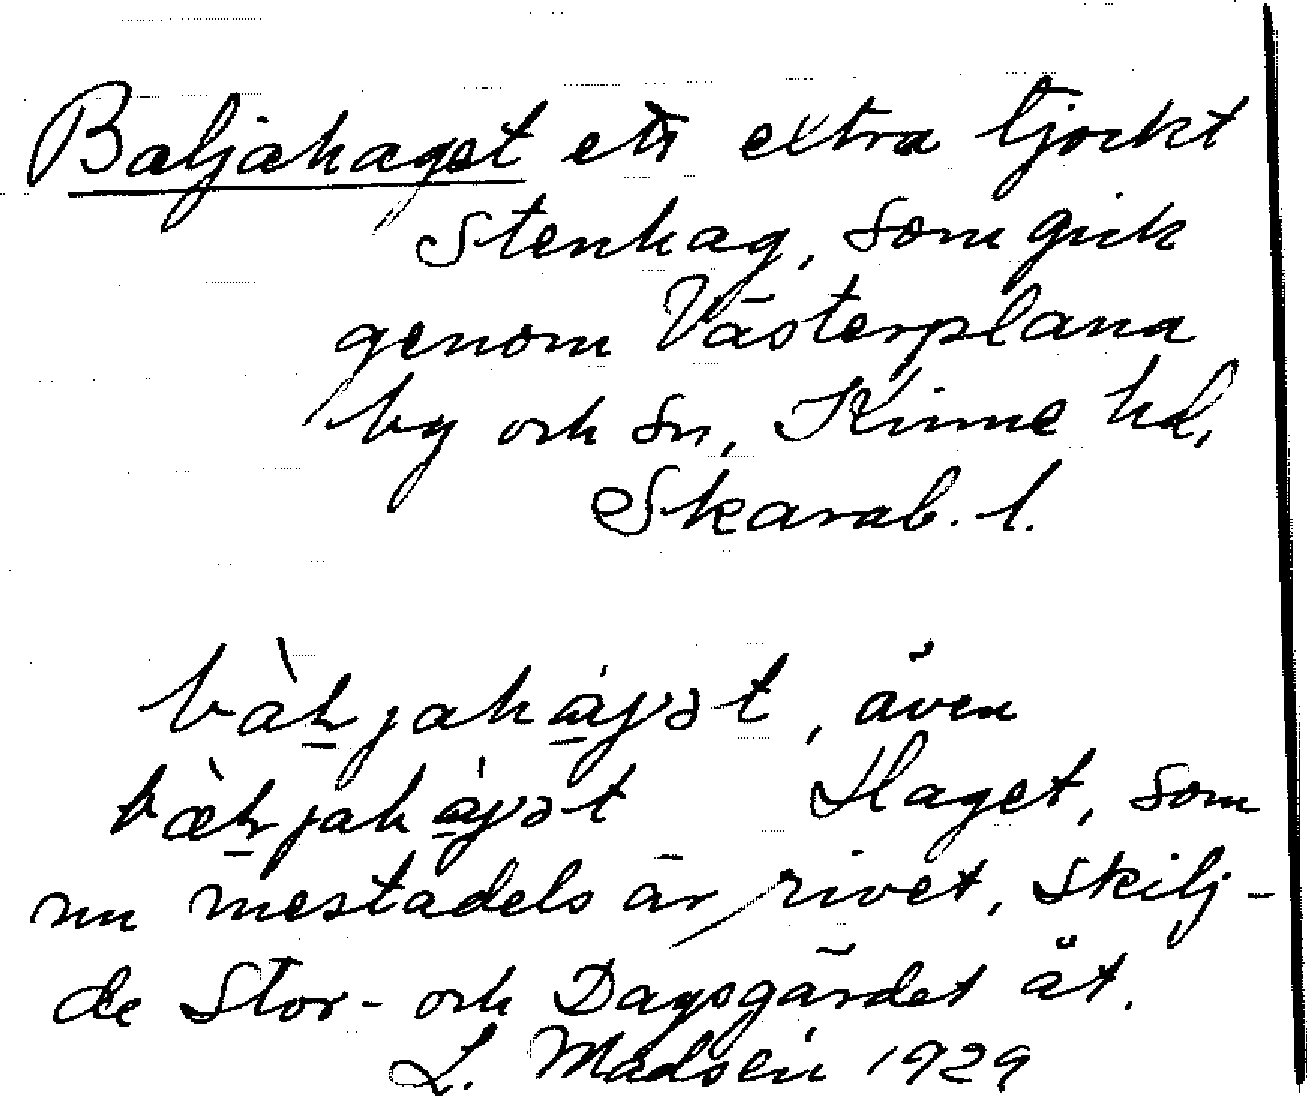 Baljahaget ett extra tjockt
Stenhag, som gick
genom Västerplana
by och sn, Kinne hd,
Skarab. l.
även
Haget, som
nu mestadels är rivet, skilj-
de Stor- och Dagsgärdet åt.
L. Madsén 1929